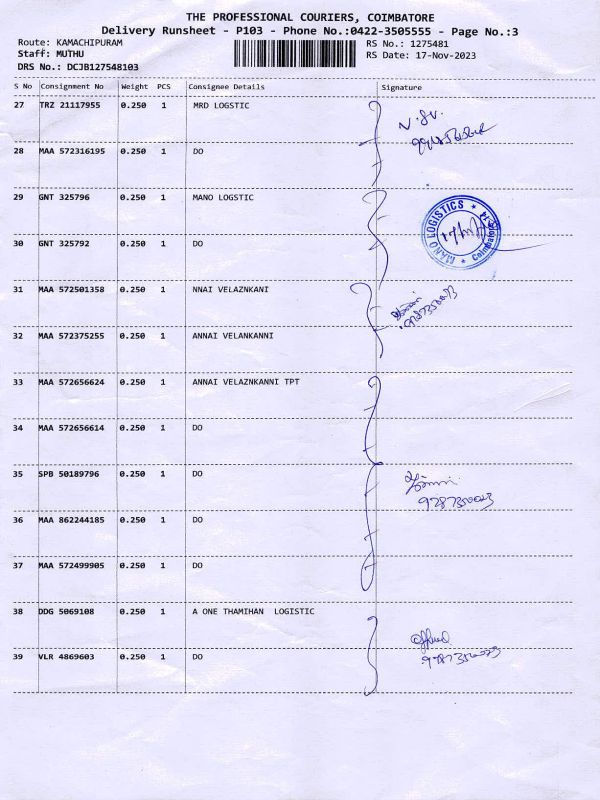 THE PROFESSIONAL COURIERS, COIMBATORE
Delivery Runsheet - P103 - Phone No.:0422-3505555 - Page No.:3
Route: KAMACHIPURAM RS No.: 1275481
Staff: MUTHU RS Date: 17-Nov-2023
DRS No.: DCJB127548103
S No Consignment No Weight PCS Consignee Details Signature
27 TRZ 21117955 0.250 1 MRD LOGSTIC
28 MAA 572316195 0.250 1 DO
29 GNT 325796 0.250 1 MANO LOGSTIC
MANO LOGISTICS * Coimbatore-14 *
30 GNT 325792 0.250 1 DO
31 MAA 572501358 0.250 1 NNAI VELAZNKANI
32 MAA 572375255 0.250 1 ANNAI VELANKANNI
33 MAA 572656624 0.250 1 ANNAI VELAZNKANNI TPT
34 MAA 572656614 0.250 1 DO
35 SPB 50189796 0.250 1 DO
36 MAA 862244185 0.250 1 DO
37 MAA 572499905 0.250 1 DO
38 DDG 5069108 0.250 1 A ONE THAMIHAN LOGISTIC
39 VLR 4869603 0.250 1 DO